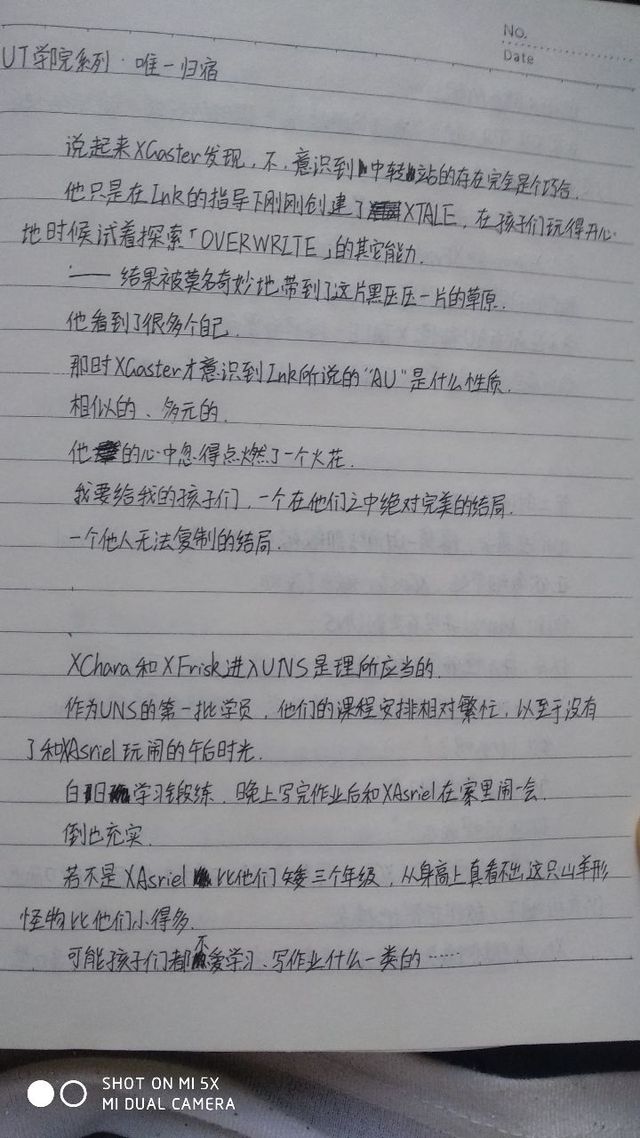 No.
Date
UT学院系列·唯一归宿
说起来XGaster发现,不,意识到中转站的存在完全是个巧合.
他只是在Ink的指导下刚刚创建了XTALE,在孩子们玩得开心
地时候试着探索「OVERWRITE」的其它能力.
——结果被莫名奇妙地带到了这片黑压压一片的草原.
他看到了很多个自己.
那时XGaster才意识到Ink所说的“AU”是什么性质.
相似的、多元的.
他的心中忽得点燃了一个火花.
我要给我的孩子们,一个在他们之中绝对完美的结局.
一个他人无法复制的结局.
XChara和XFrisk进入UNS是理所应当的.
作为UNS的第一批学员,他们的课程安排相对繁忙,以至于没有
了和XAsriel玩闹的午后时光.
白日学习锻练,晚上写完作业后和XAsriel在家里闹一会.
倒也充实.
若不是XAsriel比他们矮三个年级,从身高上真看不出这只山羊形
怪物比他们小得多.
可能孩子们都不爱学习、写作业什么一类的……
SHOT ON MI 5X
MI DUAL CAMERA